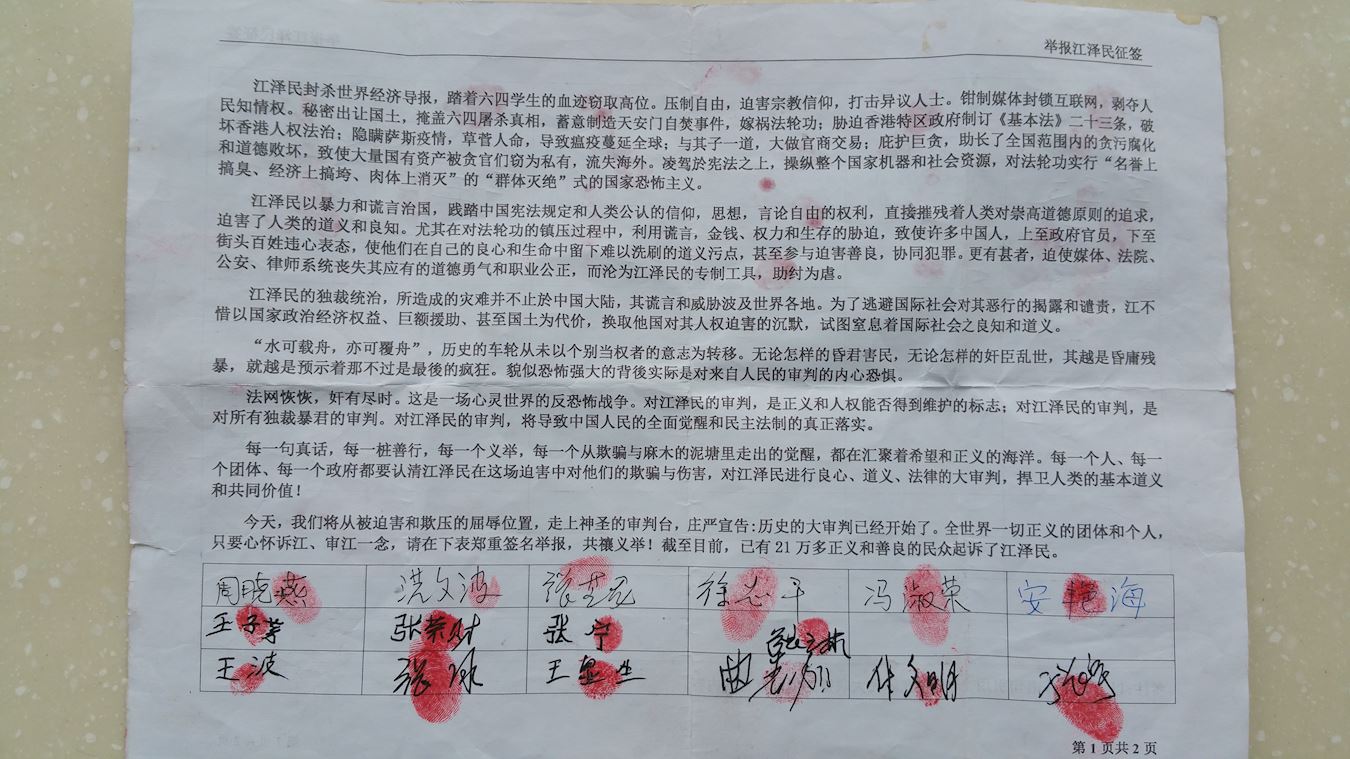 举报江泽民征签
江泽民封杀世界经济导报，踏着六四学生的血迹窃取高位。压制自由，迫害宗教信仰，打击异议人士。钳制媒体封锁互联网，剥夺人
民知情权。秘密出让国土，掩盖六四屠杀真相，蓄意制造天安门自焚事件，嫁祸法轮功；胁迫香港特区政府制订《基本法》二十三条，破
坏香港人权法治；隐瞒萨斯疫情，草菅人命，导致瘟疫蔓延全球；与其子一道，大做官商交易；庇护巨贪，助长了全国范围内的贪污腐化
和道德败坏，致使大量国有资产被贪官们窃为私有，流失海外。凌驾於宪法之上，操纵整个国家机器和社会资源，对法轮功实行“名誉上
搞臭、经济上搞垮、肉体上消灭”的“群体灭绝”式的国家恐怖主义。
江泽民以暴力和谎言治国，践踏中国宪法规定和人类公认的信仰，思想，言论自由的权利，直接摧残着人类对崇高道德原则的追求，
迫害了人类的道义和良知。尤其在对法轮功的镇压过程中，利用谎言，金钱、权力和生存的胁迫，致使许多中国人，上至政府官员，下至
街头百姓违心表态，使他们在自己的良心和生命中留下难以洗刷的道义污点，甚至参与迫害善良，协同犯罪。更有甚者，迫使媒体、法院、
公安、律师系统丧失其应有的道德勇气和职业公正，而沦为江泽民的专制工具，助纣为虐。
江泽民的独裁统治，所造成的灾难并不止於中国大陆，其谎言和威胁波及世界各地。为了逃避国际社会对其恶行的揭露和谴责，江不
惜以国家政治经济权益、巨额援助、甚至国土为代价，换取他国对其人权迫害的沉默，试图窒息着国际社会之良知和道义。
“水可载舟，亦可覆舟”，历史的车轮从未以个别当权者的意志为转移。无论怎样的昏君害民，无论怎样的奸臣乱世，其越是昏庸残
暴，就越是预示着那不过是最後的疯狂。貌似恐怖强大的背後实际是对来自人民的审判的内心恐惧。
法网恢恢，奸有尽时。这是一场心灵世界的反恐怖战争。对江泽民的审判，是正义和人权能否得到维护的标志；对江泽民的审判，是
对所有独裁暴君的审判。对江泽民的审判，将导致中国人民的全面觉醒和民主法制的真正落实。
每一句真话，每一桩善行，每一个义举，每一个从欺骗与麻木的泥塘里走出的觉醒，都在汇聚着希望和正义的海洋。每一个人、每一
个团体、每一个政府都要认清江泽民在这场迫害中对他们的欺骗与伤害，对江泽民进行良心、道义、法律的大审判，捍卫人类的基本道义
和共同价值！
今天，我们将从被迫害和欺压的屈辱位置，走上神圣的审判台，庄严宣告:历史的大审判已经开始了。全世界一切正义的团体和个人，
只要心怀诉江、审江一念，请在下表郑重签名举报，共禳义举！截至目前，已有 21 万多正义和善良的民众起诉了江泽民。
周晓燕 洪文波 张芝花 徐志平 冯淑荣 安艳海
张荣财 张宁
王波
第 1 页共 2 页